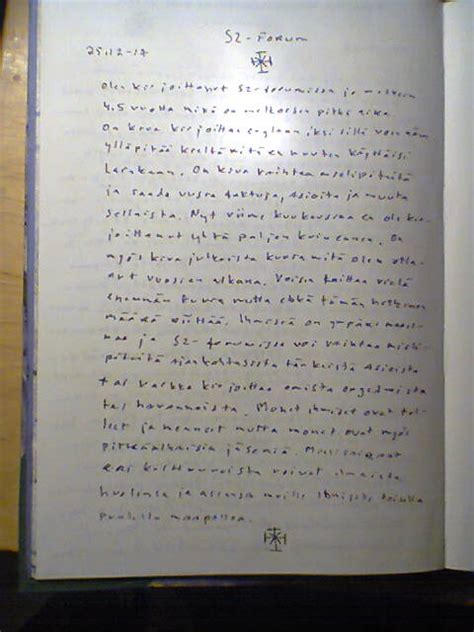 S2-FORUM
25.12-17
Olen kirjoittanut S2-foorumissa jo melkein
4.5 vuotta mikä on melkoisen pitkä aika
On kiva kirjoittaa englanniksi sillä voin näin
ylläpitää kieltä mitä en muuten käyttäisi
On kiva vaihtaa mielipiteitä
ja saada uusia faktoja, asioita ja muuta
sellaista. Nyt viime kuukausina en ole kir-
joittanut yhtä paljon kuin ennen. On
myös kiva julkaista kuvia mitä olen otta-
nut vuosien aikana. Voisin laittaa vielä
enemmän kuvia mutta ehkä tämän hetkinen
määrä riittää. Ihmisiä on ympäri maail-
maa ja S2-foorumissa voi vaihtaa mieli-
piteitä ajankohtaisista tärkeistä asioista
tai vaikka kirjoittaa omista ongelmista
tai havannoista. Monet ihmiset ovat tul-
leet ja menneet mutta monet ovat myös
pitkäaikaisia jäseniä.
eri kulttuureista voivat ilmaista
huolensa ja asiansa muille ihmisille toisella
puolella maapalloa.